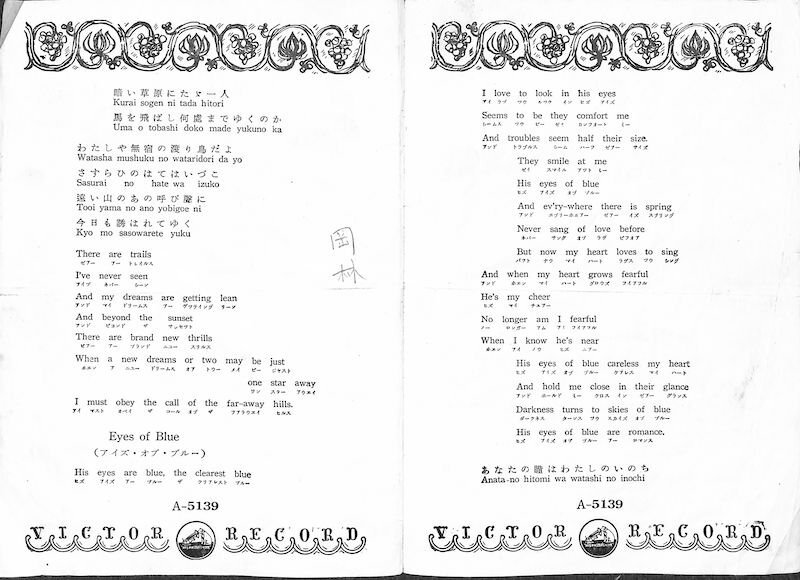 暗い草原にたゞ一人
Kurai sogen ni tada hitori
馬を飛ばし何處までゆくのか
Uma o tobashi doko made yukuno ka
わたしや無宿の渡り鳥だよ
Watasha mushuku no wataridori da yo
さすらひのはてはいづこ
Sasurai no hate wa izuko
遠い山のあの呼び聲に
Tooi yama no ano yobigoe ni
今日も誘はれてゆく
Kyo mo sasowarete yuku
There are trails
ゼアー アー トレイルス
I've never seen
アイブ ネバー シーン
And my dreams are getting lean
アンド マイ ドリームス アー ゲツテイング リーン
And beyond the sunset
アンド ビヨンド ザ サンセツト
There are brand new thrills
ゼアー アー ブランド ニユー スリルス
When a new dreams or two may be just
ホエン ア ニユー ドリームス オア トウー メイ ビー ジヤスト
one star away
ワン スター アウエイ
I must obey the call of the far-away hills.
アイ マスト オベイ ザ コール オブ ザ フアラウエイ ヒルス
Eyes of Blue
(アイズ・オブ・ブルー)
His eyes are blue, the clearest blue
ヒズ アイズ アー ブルー ザ クリアレスト ブルー
A-5139
VICTOR RECORD
岡林
I love to look in his eyes
アイ ラブ ツウ ルツク イン ヒズ アイズ
Seems to be they comfort me
シームス ツウ ビー ゼイ カンフオート ミー
And troubles seem half their size.
アンド トラブルス シーム ハーフ ゼアー サイズ
They smile at me
ゼイ スマイル アツト ミー
His eyes of blue
ヒズ アイズ オブ ブルー
And ev'ry-where there is spring
アンド エブリーホエアー ゼアー イズ スプリング
Never sang of love before
ネバー サング オブ ラヴ ビフオア
But now my heart loves to sing
バツト ナウ マイ ハート ラヴス ツウ シング
And when my heart grows fearful
アンド ホエン マイ ハート グロウズ フイアフル
He's my cheer
ヒズ マイ チエアー
No longer am I fearful
ノー ロンガー アム アイ フイアフル
When I know he's near
ホエン アイ ノウ ヒズ ニアー
His eyes of blue careless my heart
ヒズ アイズ オブ ブルー ケアレス マイ ハート
And hold me close in their glance
アンド ホールド ミー クロス イン ゼアー グランス
Darkness turns to skies of blue
ダークネス ターンス ツウ スカイズ オブ ブルー
His eyes of blue are romance.
ヒズ アイズ オブ ブルー アー ロマンス
あなたの瞳はわたしのいのち
Anata-no hitomi wa watashi no inochi
A-5139
VICTOR RECORD